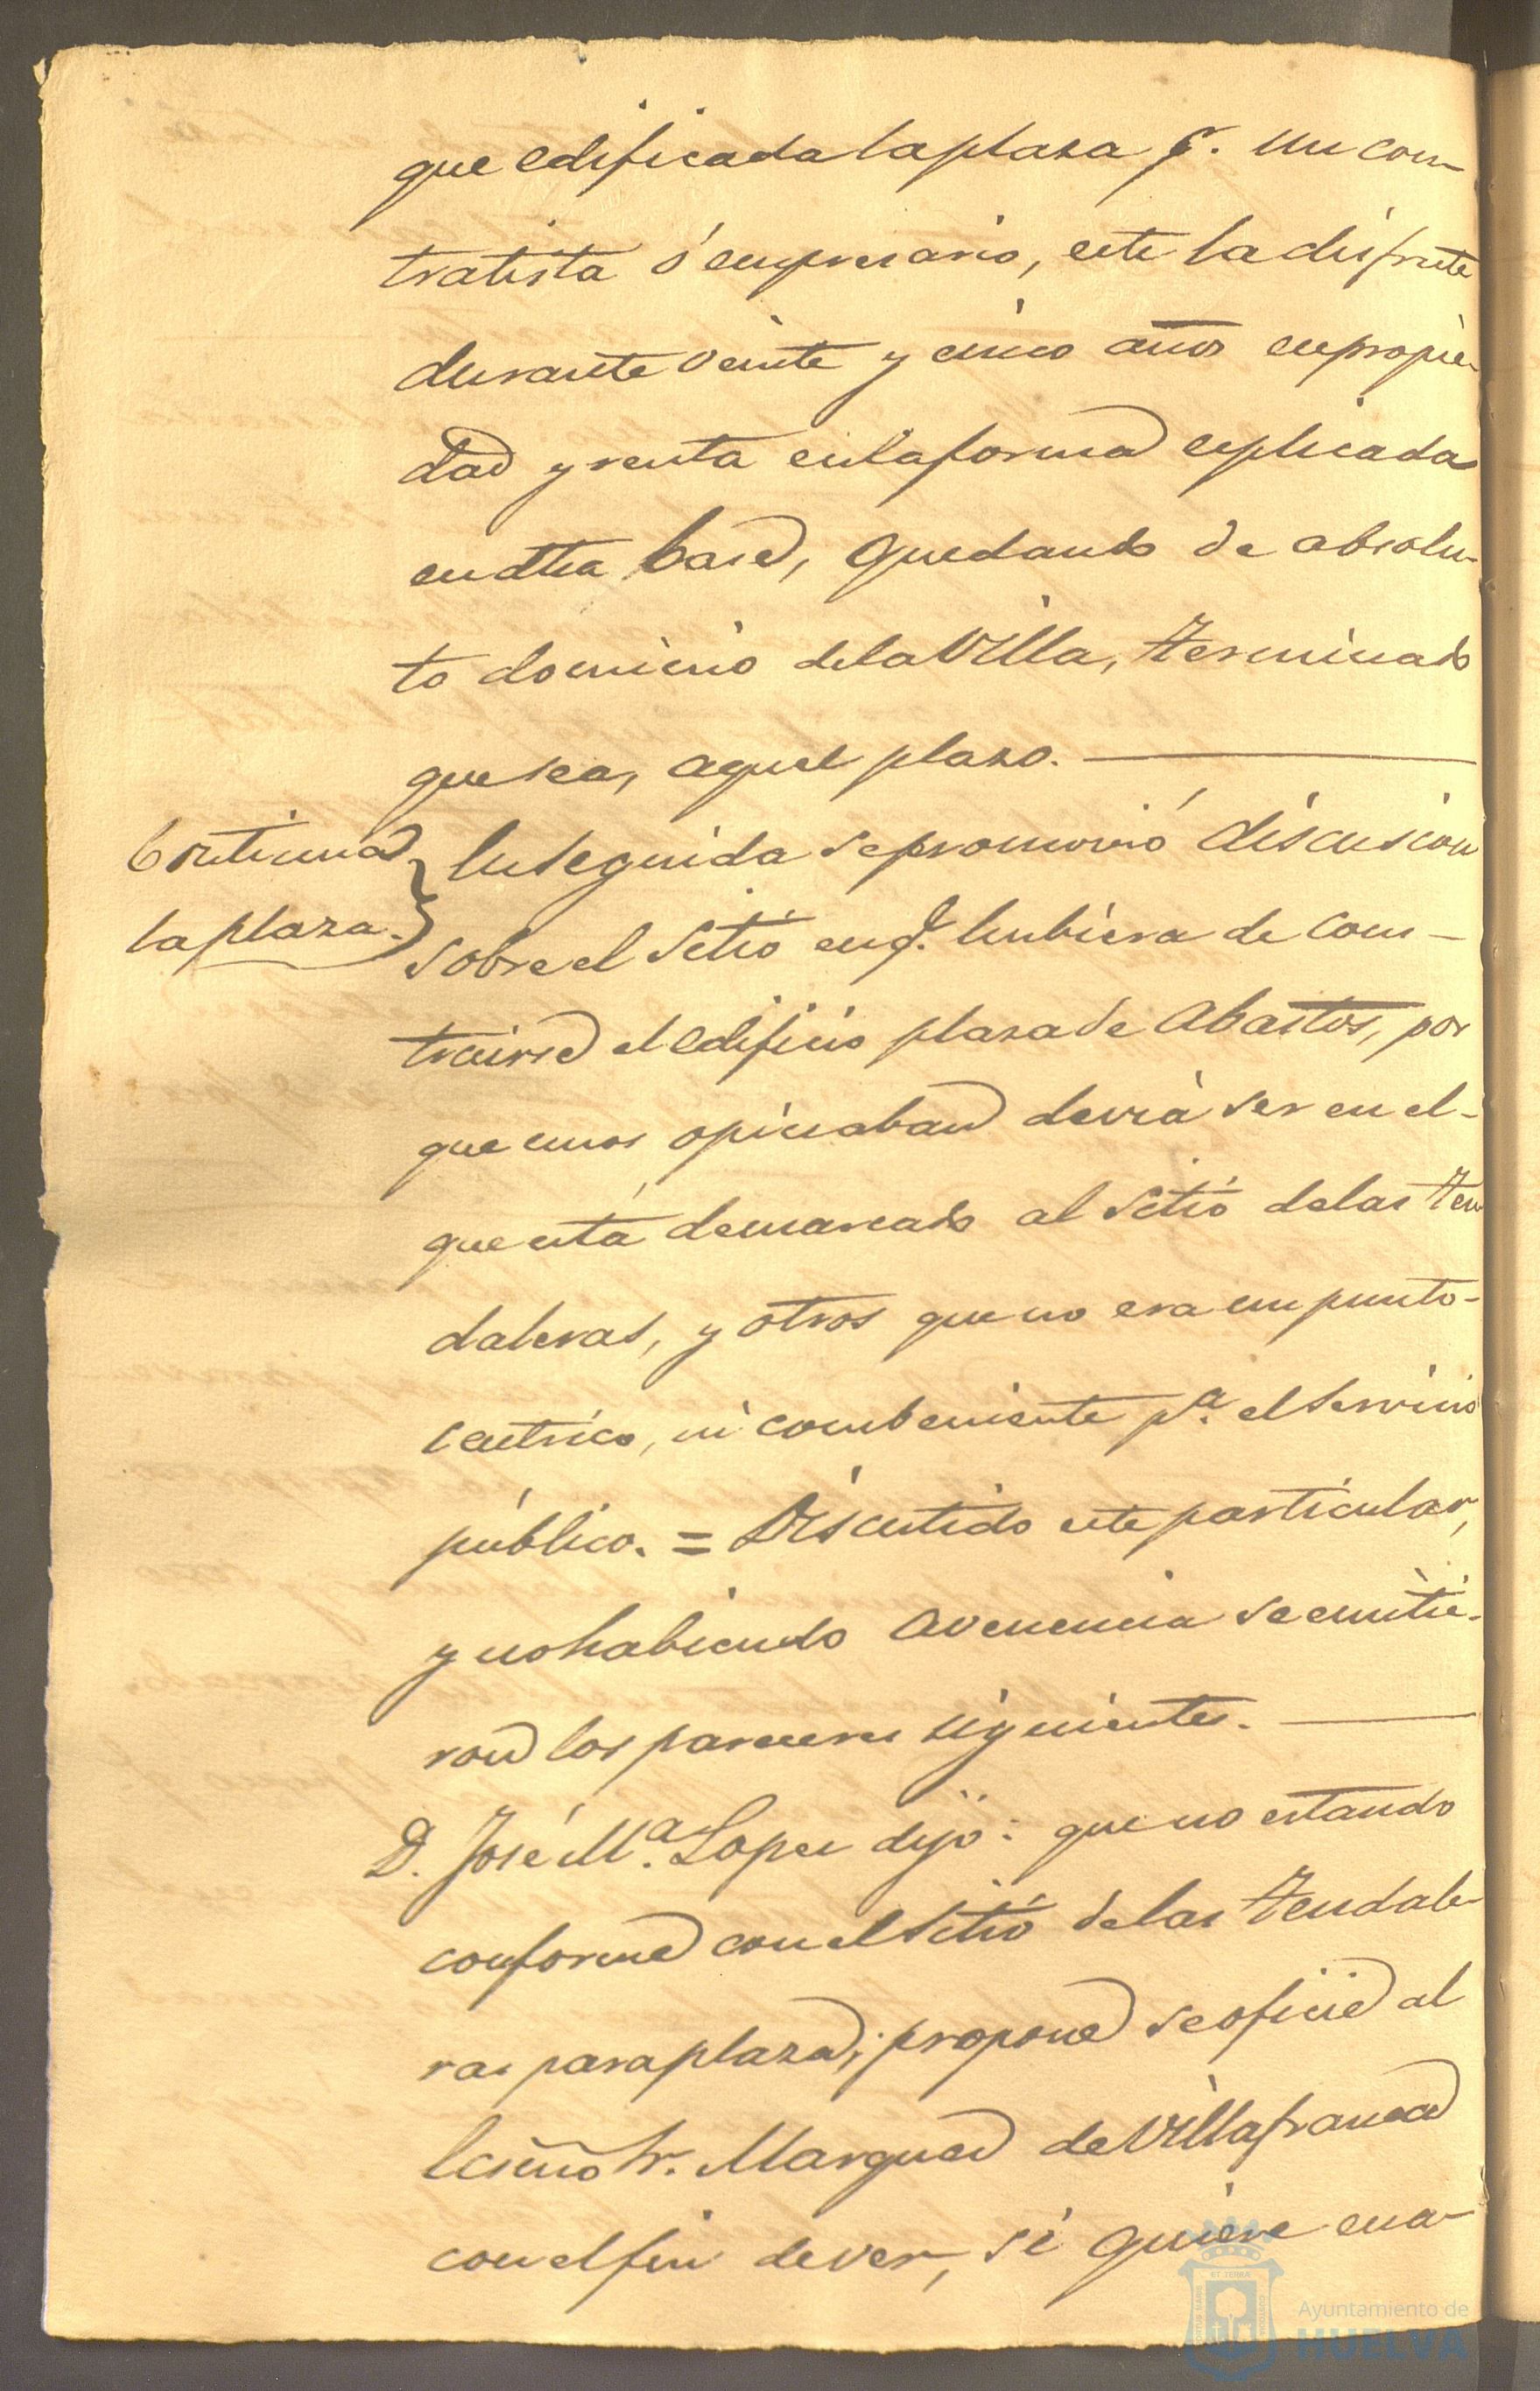 que edificada la plaza p.r un con-
tratista ó empresario, este la disfrute
durante veinte y cinco años en propie-
dad y renta en la forma esplicada
en dha base, quedando de absolu-
to dominio de la Villa, terminado
que sea, aquel plazo.
Continua
la plaza.
En seguida se promovió discusion
sobre el sitio en q.e hubiera de cons-
truirse el edificio plaza de Abastos, por
que unos opinaban devia ser en el
que está demarcado al sitio de las ten
daleras, y otros que no era un punto
centrico, ni combeniente p.a el servicio
público. = Discutido este particular,
y no habiendo avenencia se emitie-
ron los pareceres siguientes.
D. José M.a Lopez dijo: que no estando
conforme con el sitio de las tendale-
ras para plaza; propone se oficie al
Ecsmo Sr. Marques de Villafranca
con el fin de ver, si quiere ena-
Ayuntamiento de
HUELVA